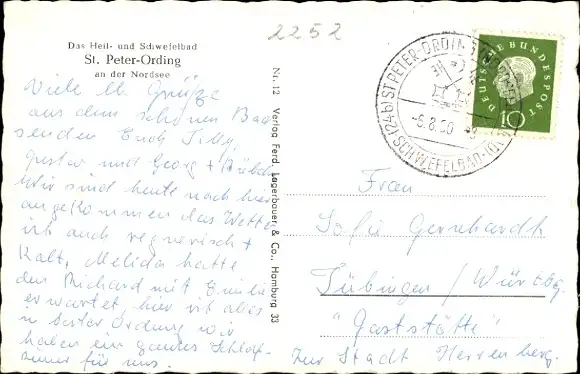 2252
Das Heil- und Schwefelbad
St. Peter-Ording
an der Nordsee
Viele lb. Grüße
aus dem schönen Bad
senden Euch Tilly,
Gustav und Georg +
Wir sind heute nach hier
angekommen das Wetter
ist auch regnerisch +
Kalt, hatte
den Richard mit
erwartet, hier ist alles
in bester Ordnung wir
haben ein ganzes Schlaf-
zimmer für uns.
Nr. 12 Verlag Ferd. Lagerbauer & Co., Hamburg 33
ST. PETER-ORDING
(24b)
-6.8.60
SCHWEFELBAD
DEUTSCHE BUNDESPOST
10
Frau
Sofie Gernhardt
Tübingen / Württbg.
"Gaststätte"
Zur Stadt Herrenberg.